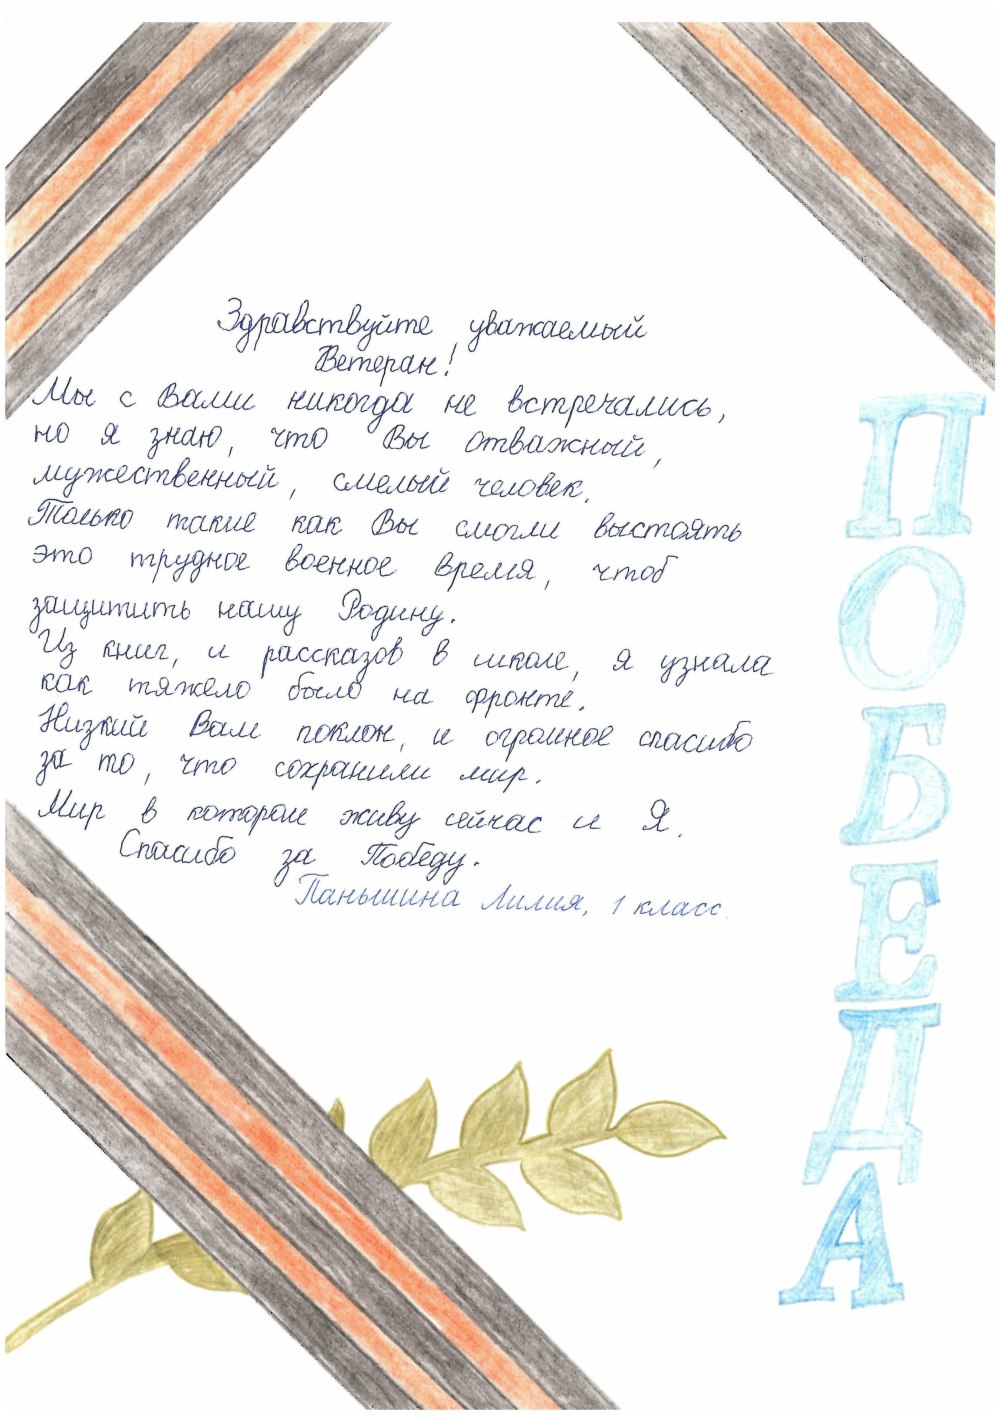 Здравствуйте уважаемый
Ветеран!
Мы с Вами никогда не встречались,
но я знаю, что Вы отважный,
мужественный, смелый человек.
Только такие как Вы смогли выстоять
это трудное военное время, чтоб
защитить нашу Родину.
Из книг, и рассказов в школе, я узнала
как тяжело было на фронте.
Низкий Вам поклон, и огромное спасибо
за то, что сохранили мир.
Мир в котором живу сейчас и Я.
Спасибо за Победу.
Паньшина Лилия, 1 класс.
ПОБЕДА